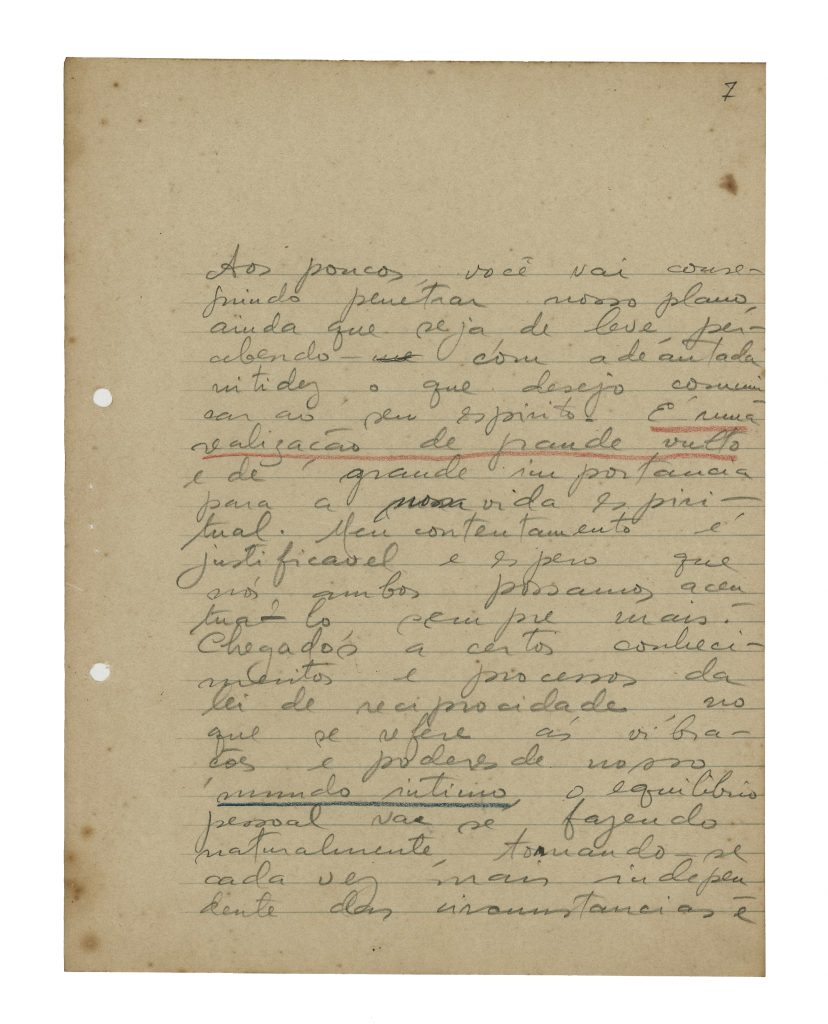 7
Aos poucos, você vai conse-
guindo penetrar nosso plano,
ainda que seja de leve per-
cebendo - me com adeantada
nitidez o que desejo comuni
car ao seu espirito. É uma
realização de grande vulto
e de grande importancia
para a nossa vida espiri-
tual. Meu contentamento é
justificavel e espero que
nós ambos possamos acen
tua-lo sempre mais.
Chegados a certos conheci-
mentos e processos da
lei de reciprocidade no
que se refere ás vibra-
ções e poderes de nosso
mundo intimo, o equilibrio
pessoal vae se fazendo
naturalmente, tornando-se
cada vez mais indepen
dente das circumstancias e